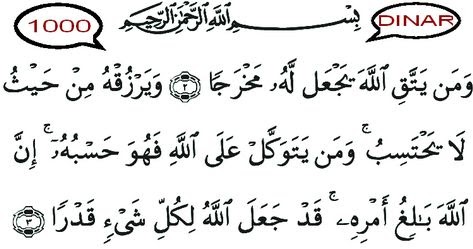 1000 بِسْمِ ٱللَّهِ ٱلرَّحْمَٰنِ ٱلرَّحِيمِ DINAR
وَمَن يَتَّقِ ٱللَّهَ يَجْعَل لَّهُۥ مَخْرَجًا ﴿٢﴾ وَيَرْزُقْهُ مِنْ حَيْثُ
لَا يَحْتَسِبُ ۚ وَمَن يَتَوَكَّلْ عَلَى ٱللَّهِ فَهُوَ حَسْبُهُۥٓ ۚ إِنَّ
ٱللَّهَ بَٰلِغُ أَمْرِهِۦ ۚ قَدْ جَعَلَ ٱللَّهُ لِكُلِّ شَىْءٍ قَدْرًا ﴿٣﴾